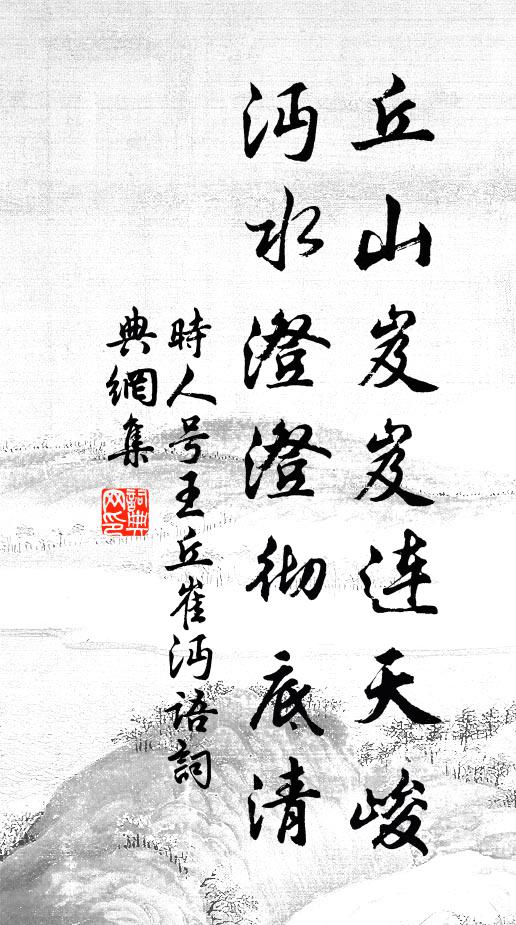 丘山岌岌连天峻
沔水澄澄彻底清
時人号王丘崔沔语詞
典網集
詞典
网印